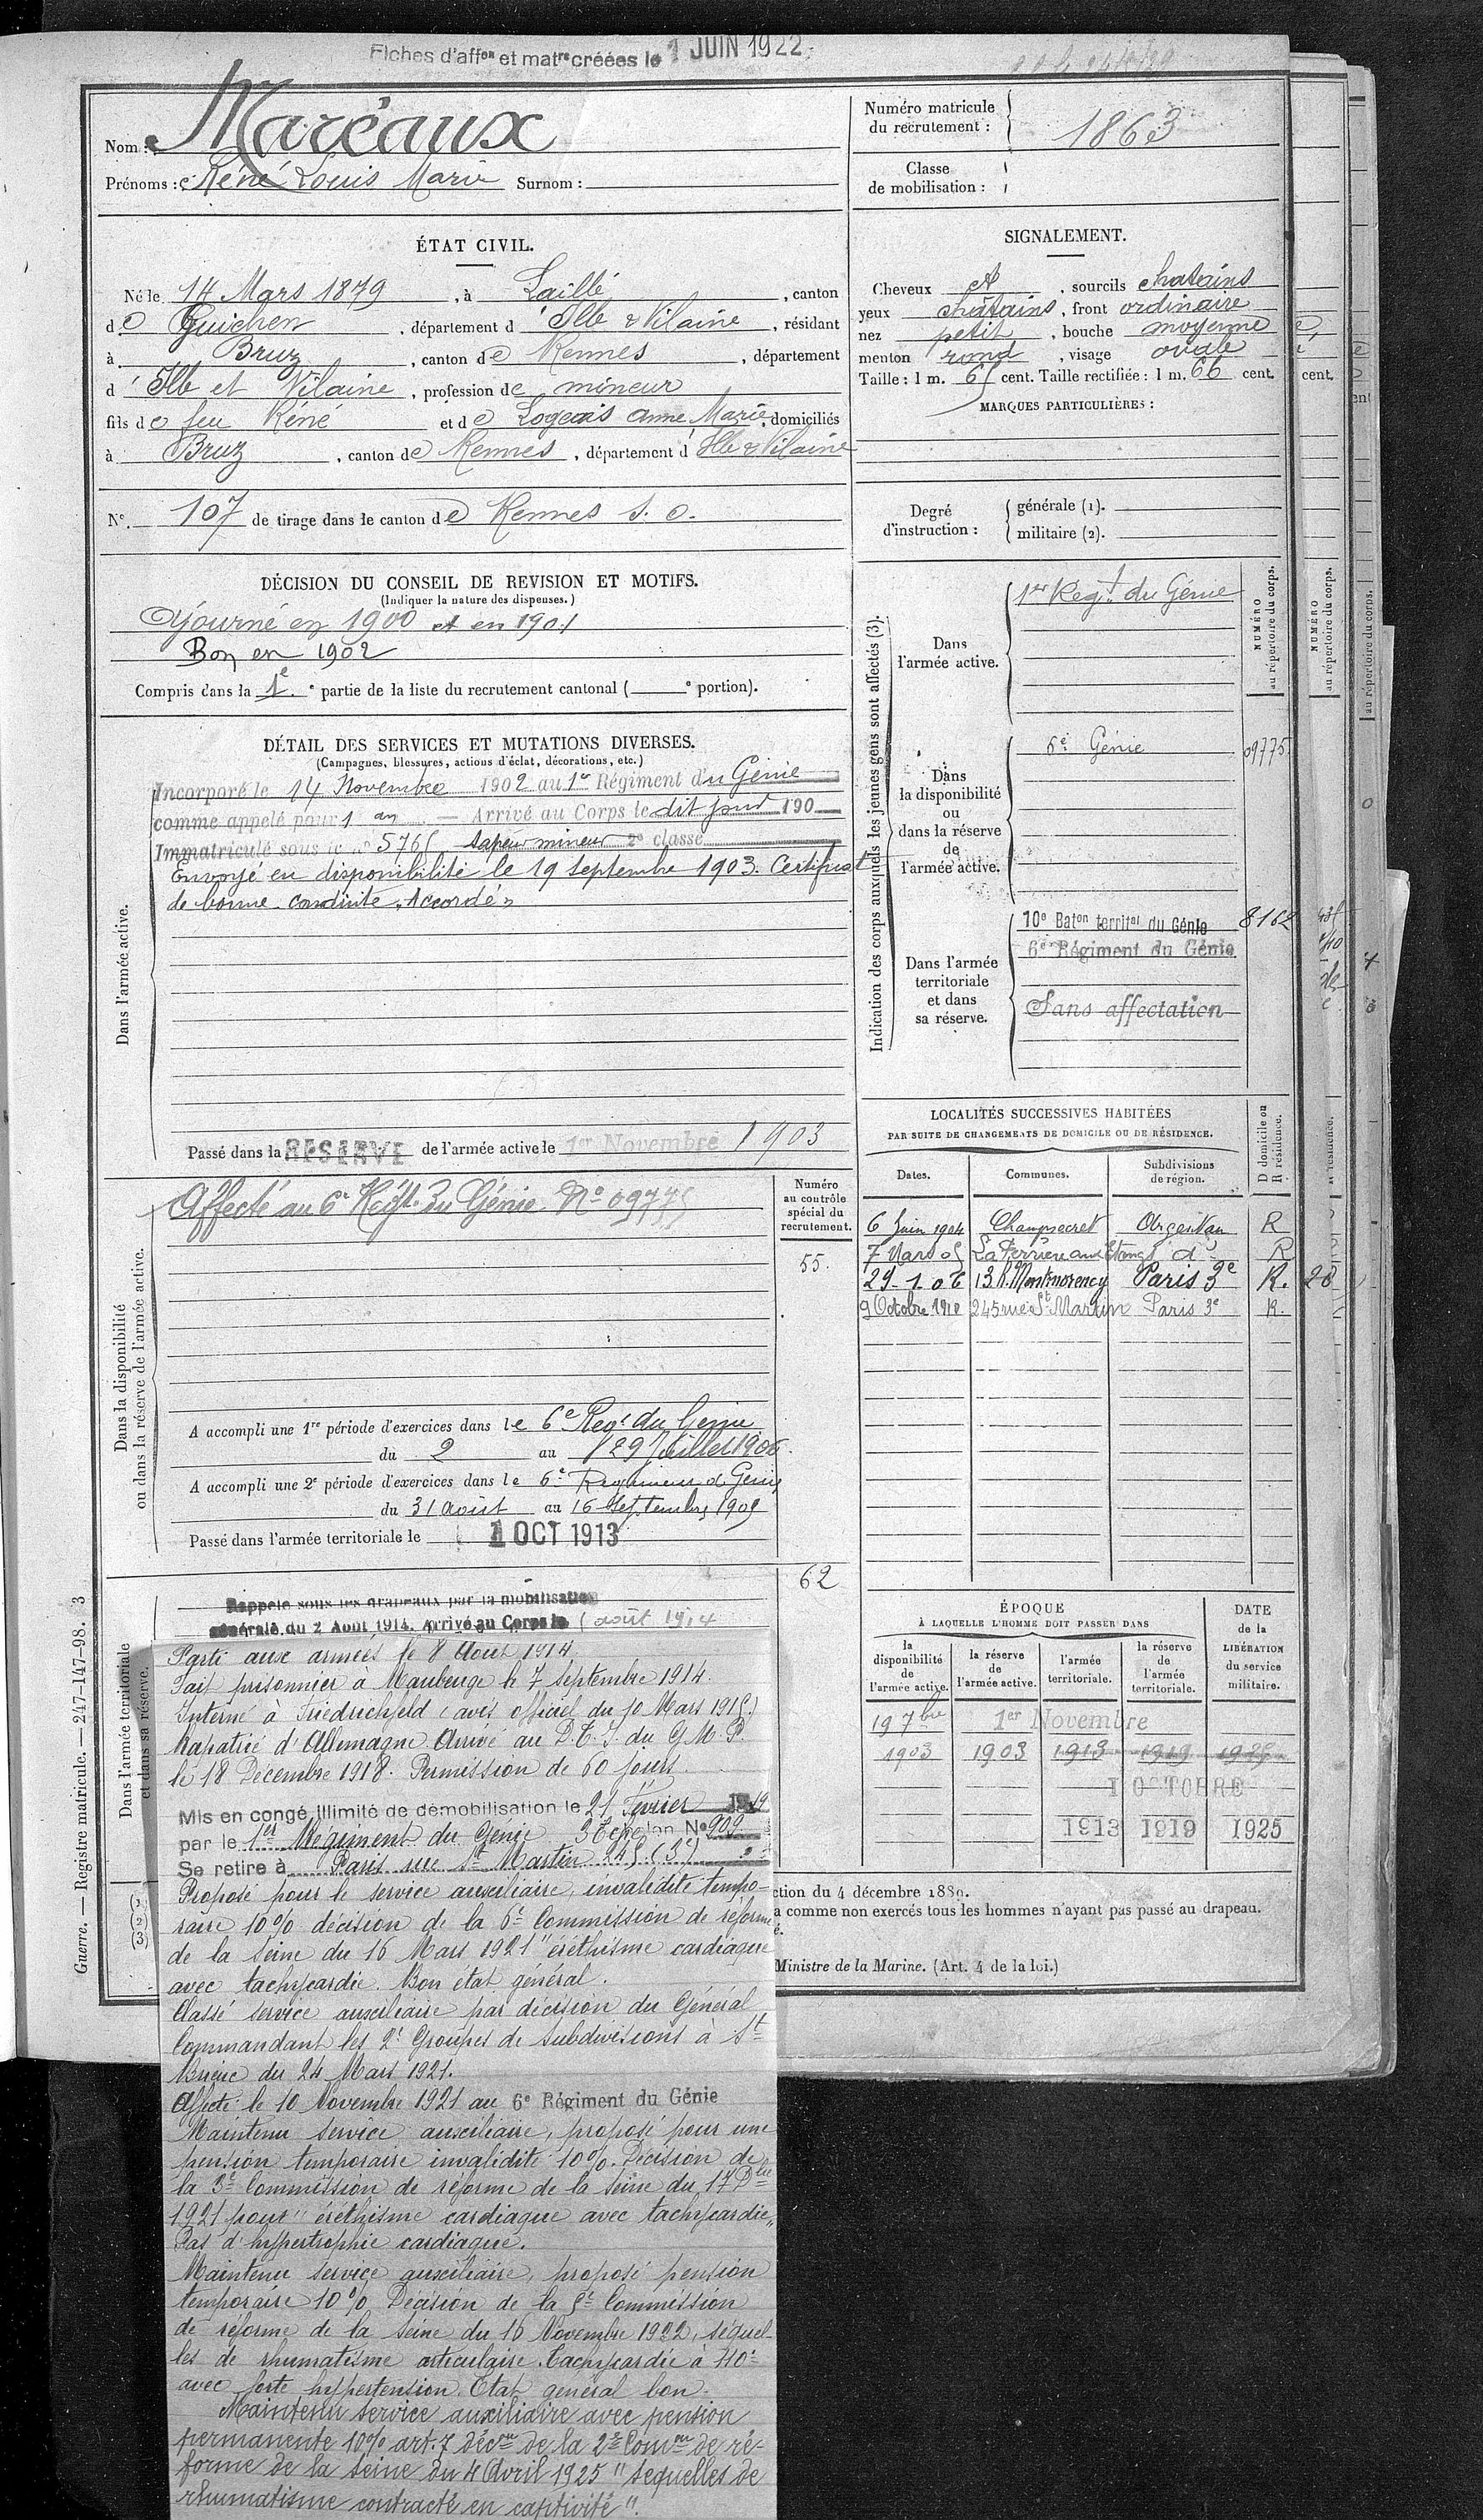 Fiches d'affon et matre créées le 1 JUIN 1922
Nom : Maréaux
Prénoms : René Louis Marie Surnom :
Numéro matricule du recrutement : 1863
Classe de mobilisation :
ÉTAT CIVIL.
Né le 14 Mars 1879, à Laillé, canton
de Guichen, département d'Ille & Vilaine, résidant
à Bruz, canton de Rennes, département
d'Ille et Vilaine, profession de mineur
fils de feu Réné et de Logeais Anne Marie, domiciliés
à Bruz, canton de Rennes, département d'Ille & Vilaine
N° 107 de tirage dans le canton de Rennes S. O.
SIGNALEMENT.
Cheveux et, sourcils chatains
yeux chatains, front ordinaire
nez petit, bouche moyenne
menton rond, visage ovale
Taille : 1 m. 65 cent. Taille rectifiée : 1 m. 66 cent.
MARQUES PARTICULIÈRES :
Degré d'instruction : générale (1).
militaire (2).
DÉCISION DU CONSEIL DE REVISION ET MOTIFS.
(Indiquer la nature des dispenses.)
Ajourné en 1900 et en 1901
Bon en 1902
Compris dans la 1e partie de la liste du recrutement cantonal ( e portion).
DÉTAIL DES SERVICES ET MUTATIONS DIVERSES.
(Campagnes, blessures, actions d'éclat, décorations, etc.)
Dans l'armée active.
Incorporé le 14 Novembre 1902 au 1er Régiment du Génie
comme appelé pour 1 an — Arrivé au Corps le dit jour 190
Immatriculé sous le n° 5765 sapeur mineur 2e classe
Envoyé en disponibilité le 19 Septembre 1903. Certificat
de bonne conduite « Accordé »
Passé dans la RESERVE de l'armée active le 1er Novembre 1903
Indication des corps auxquels les jeunes gens sont affectés (3).
NUMÉRO au répertoire du corps.
Dans l'armée active.
1er Régt. du Génie
Dans la disponibilité ou dans la réserve de l'armée active.
6e Génie 09775
Dans l'armée territoriale et dans sa réserve.
10e Baton territal du Génie 8162
6e Régiment du Génie
Sans affectation
LOCALITÉS SUCCESSIVES HABITÉES
PAR SUITE DE CHANGEMENTS DE DOMICILE OU DE RÉSIDENCE.
Dates. Communes. Subdivisions de région. D domicile ou R résidence.
6 Juin 1904 Champsecret Argentan R
7 Mars 05 La Ferrière aux Etangs d° R
29-1-06 13 R. Montmorency Paris 3e R. 28
9 Octobre 1912 245 rue St Martin Paris 3e R.
Dans la disponibilité ou dans la réserve de l'armée active.
Affecté au 6e Régt. du Génie N° 09775
Numéro au contrôle spécial du recrutement.
55.
A accompli une 1re période d'exercices dans le 6e Regt du Genie
du 2 au 29 Juillet 1906.
A accompli une 2e période d'exercices dans le 6e Régiment du Génie
du 31 août au 16 Septembre 1909
Passé dans l'armée territoriale le 1 OCT 1913
62
Dans l'armée territoriale et dans sa réserve.
Rappelé sous les drapeaux par la mobilisation
générale du 2 Août 1914. Arrivé au Corps le août 1914
Parti aux armées le 8 Aout 1914.
Fait prisonnier à Maubeuge le 7 Septembre 1914.
Interné à Friedrichfeld (avis officiel du 10 Mars 1915)
Rapatrié d'Allemagne Arrivé au D.T.I. du G.M.P.
le 18 Décembre 1918. Permission de 60 jours.
Mis en congé illimité de démobilisation le 21 Février 1919
par le 1er Régiment du Génie 3 Echelon N° 909.
Se retire à Paris rue St Martin 245 (3e)
Proposé pour le service auxiliaire, invalidité tempo-
raire 10% décision de la 6e Commission de réforme
de la Seine du 16 Mars 1921 "éréthisme cardiaque
avec tachycardie. Bon état général.
Classé service auxiliaire par décision du Général
Commandant les 2e Groupes de Subdivisions à St
Brieuc du 24 Mars 1921.
Affecté le 10 Novembre 1921 au 6e Régiment du Génie
Maintenu service auxiliaire, proposé pour une
pension temporaire invalidité 10%. Décision de
la 3e Commission de réforme de la Seine du 17 Dbre
1921 pour "éréthisme cardiaque avec tachycardie"
Pas d'hypertrophie cardiaque.
Maintenu service auxiliaire, proposé pension
temporaire 10% Décision de la 5e Commission
de réforme de la Seine du 16 Novembre 1922, séquel-
les de rhumatisme articulaire. Tachycardie à 110
avec forte hypertension. Etat général bon.
Maintenu service auxiliaire avec pension
permanente 10% art. 7 décon de la 2e Comon de ré-
forme de la Seine du 4 Avril 1925 "séquelles de
rhumatisme contracté en captivité".
ÉPOQUE
À LAQUELLE L'HOMME DOIT PASSER DANS
la disponibilité de l'armée active. la réserve de l'armée active. l'armée territoriale. la réserve de l'armée territoriale.
DATE de la LIBÉRATION du service militaire.
19 7bre 1er Novembre
1903 1903 1913 1919 1925
1 OCTOBRE
1913 1919 1925
ction du 4 décembre 1889.
a comme non exercés tous les hommes n'ayant pas passé au drapeau.
é.
Ministre de la Marine. (Art. 4 de la loi.)
(1)
(2)
(3)
Guerre. — Registre matricule. — 247-147-98. 3